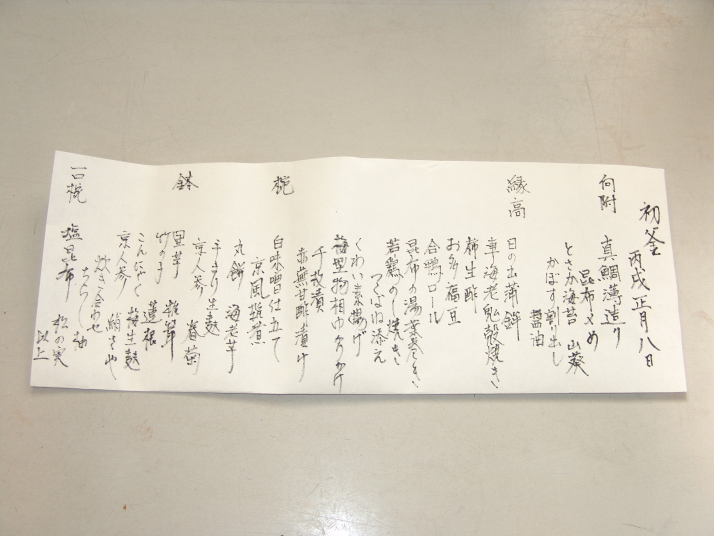 初釜
丙戌 正月八日
向附 真鯛薄造り
昆布〆め
とさか海苔 山葵
かぼす割り出し
醤油
縁高
日の出蒲鉾
車海老鬼殻焼き
柿生酢
お多福豆
合鴨ロール
昆布の湯葉巻き
若鶏のし焼き
つくばね添え
くわい素揚げ
千枚漬
赤蕪甘酢漬け
椀 白味噌仕立て
京風雑煮
丸餅 海老芋
手まり生麩
京人参 春菊
鉢
里芋 椎茸
竹の子 蓮根
こんにゃく 梅生麩
京人参 絹さや
炊き合わせ
ちらし柚
一口椀 塩昆布 松の実
以上